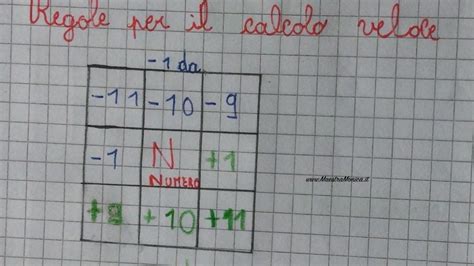 Regole per il calcolo veloce
-1 da
-11 -10 -9
-1 N +1
NUMERO
www.MaestraMonica.it
+9 +10 +11